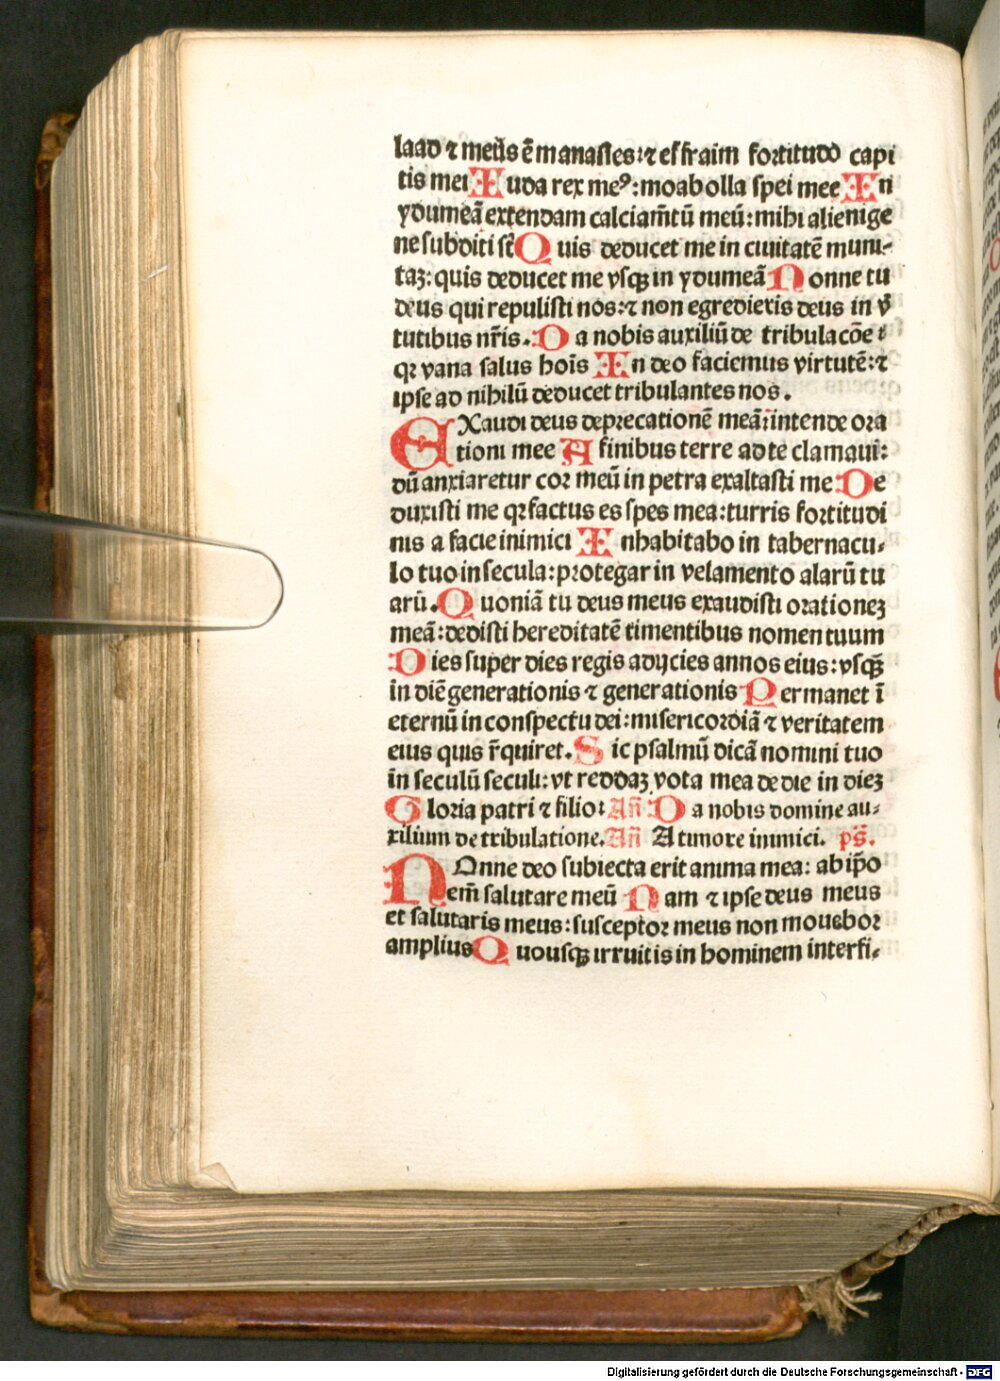 laad ⁊ meus̃ ē manasses:⁊ effraim fortitudo capi
tis mei Iuda rex me⁹:moab olla spei mee In
ydumeā extendam calciam̄tū meū:mihi alienige
ne subditi st̄ Quis deducet me in ciuitatē muni-
taꝫ:quis deducet me vsqꝫ in ydumeā Nonne tu
deus qui repulisti nos:⁊ non egredieris deus in v̄
tutibus nr̄is. Da nobis auxiliū de tribulacōe ⁊
qꝛ vana salus hoīs In deo faciemus virtutē:⁊
ipse ad nihilū deducet tribulantes nos.
EXaudi deus deprecationē meā:intende ora
tioni mee A finibus terre ad te clamaui:
dū anxiaretur cor meū in petra exaltasti me De
duxisti me qꝛ factus es spes mea:turris fortitudi
nis a facie inimici Inhabitabo in tabernacu-
lo tuo in secula:protegar in velamento alarū tu
arū. Quoniā tu deus meus exaudisti orationeꝫ
meā:dedisti hereditatē timentibus nomen tuum
Dies super dies regis adijcies annos eius:vsqꝫ
in diē generationis ⁊ generationis Permanet ī
eternū in conspectu dei:misericordiā ⁊ veritatem
eius quis r̄quiret. Sic psalmū dicā nomini tuo
in seculū seculi:vt reddaꝫ vota mea de die in dieꝫ
Gloria patri ⁊ filio: Añ Da nobis domine au-
xilium de tribulatione. Añ A timore inimici. ps̄.
NOnne deo subiecta erit anima mea: ab ip̄o
em̄ salutare meū Nam ⁊ ipse deus meus
et salutaris meus:susceptor meus non mouebor
amplius Quousqꝫ irruitis in hominem interfi-
Digitalisierung gefördert durch die Deutsche Forschungsgemeinschaft - DFG